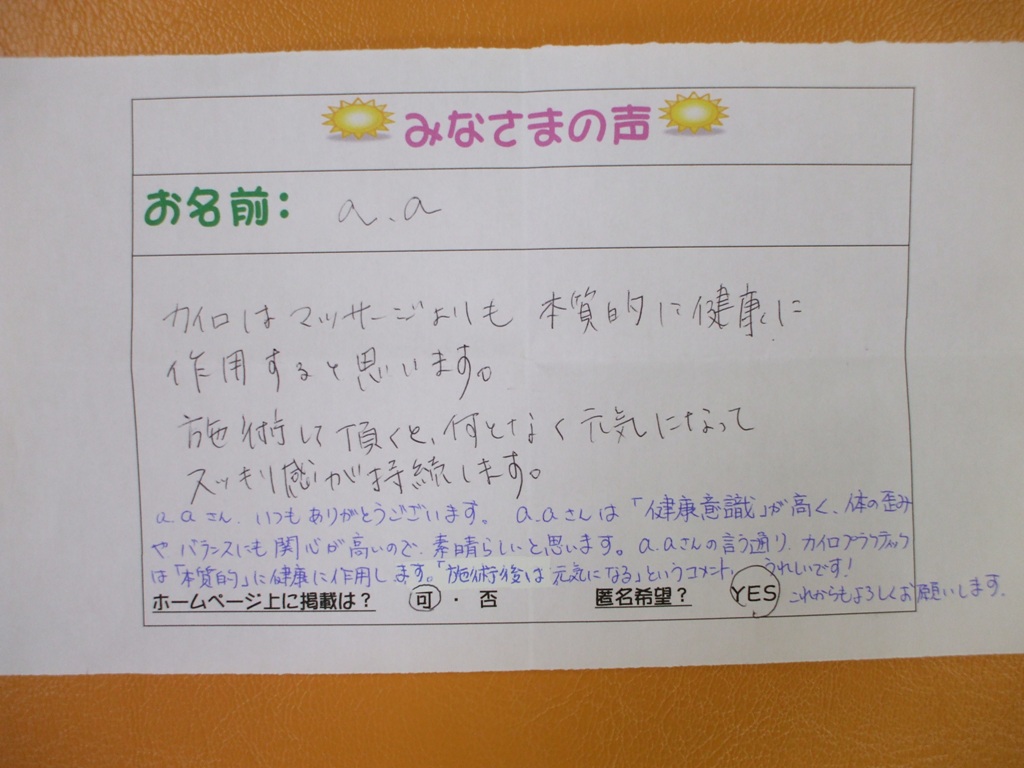 みなさまの声
お名前: a.a
カイロはマッサージよりも 本質的に健康に
作用すると思います。
施術して頂くと、何となく元気になって
スッキリ感が持続します。
a.aさん、いつもありがとうございます。 a.aさんは「健康意識」が高く、体の歪み
や バランスにも関心が高いので、素晴らしいと思います。a.aさんの言う通り、カイロプラクティック
は「本質的」に健康に作用します。「施術後は元気になる」というコメント、うれしいです!
ホームページ上に掲載は? 可 ・ 否 匿名希望? YES これからもよろしくお願いします。